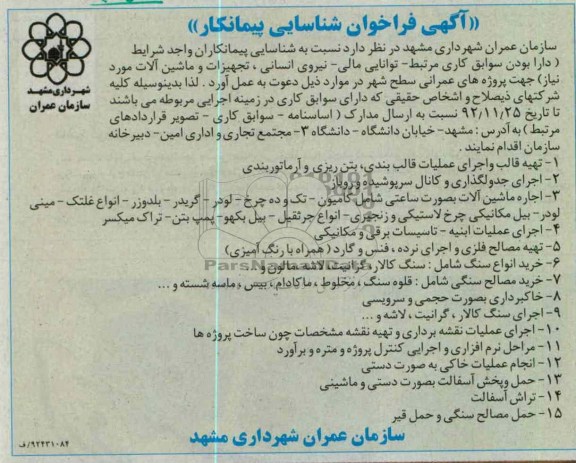 «آگهی فراخوان شناسایی پیمانکار»
شهرداری مشهد
سازمان عمران
سازمان عمران شهرداری مشهد در نظر دارد نسبت به شناسایی پیمانکاران واجد شرایط
( دارا بودن سوابق کاری مرتبط- توانایی مالی- نیروی انسانی ، تجهیزات و ماشین آلات مورد
نیاز) جهت پروژه های عمرانی سطح شهر در موارد ذیل دعوت به عمل آورد . لذا بدینوسیله کلیه
شرکتهای ذیصلاح و اشخاص حقیقی که دارای سوابق کاری در زمینه اجرایی مربوطه می باشند
تا تاریخ ۹۲/۱۱/۲۵ نسبت به ارسال مدارک ( اساسنامه - سوابق کاری - تصویر قراردادهای
مرتبط ) به آدرس : مشهد- خیابان دانشگاه - دانشگاه ۳- مجتمع تجاری و اداری امین- دبیرخانه
سازمان اقدام نمایند .
۱- تهیه قالب واجرای عملیات قالب بندی، بتن ریزی و آرماتوربندی
۲- اجرای جدولگذاری و کانال سرپوشیده و روباز
۳- اجاره ماشین آلات بصورت ساعتی شامل کامیون - تک و ده چرخ - لودر - گریدر - بلدوزر - انواع غلتک - مینی
لودر- بیل مکانیکی چرخ لاستیکی و زنجیری- انواع جرثقیل - بیل بکهو- پمپ بتن- تراک میکسر
۴- اجرای عملیات ابنیه - تاسیسات برقی و مکانیکی
۵- تهیه مصالح فلزی و اجرای نرده ، فنس و گارد ( همراه با رنگ آمیزی)
۶- خرید انواع سنگ شامل : سنگ کالار، گرانیت، لاشه مالون و
۷- خرید مصالح سنگی شامل : قلوه سنگ ، مخلوط ، ماکادام ، بیس ، ماسه شسته و ...
۸- خاکبرداری بصورت حجمی و سرویسی
۹- اجرای سنگ کالار ، گرانیت ، لاشه و...
۱۰- اجرای عملیات نقشه برداری و تهیه نقشه مشخصات چون ساخت پروژه ها
۱۱- مراحل نرم افزاری و اجرایی کنترل پروژه و متره و برآورد
۱۲- انجام عملیات خاکی به صورت دستی
۱۳- حمل وپخش آسفالت بصورت دستی و ماشینی
۱۴- تراش آسفالت
۱۵- حمل مصالح سنگی و حمل قیر
سازمان عمران شهرداری مشهد
۹۲۴۳۱۰۸۴/ف
ParsNamadData